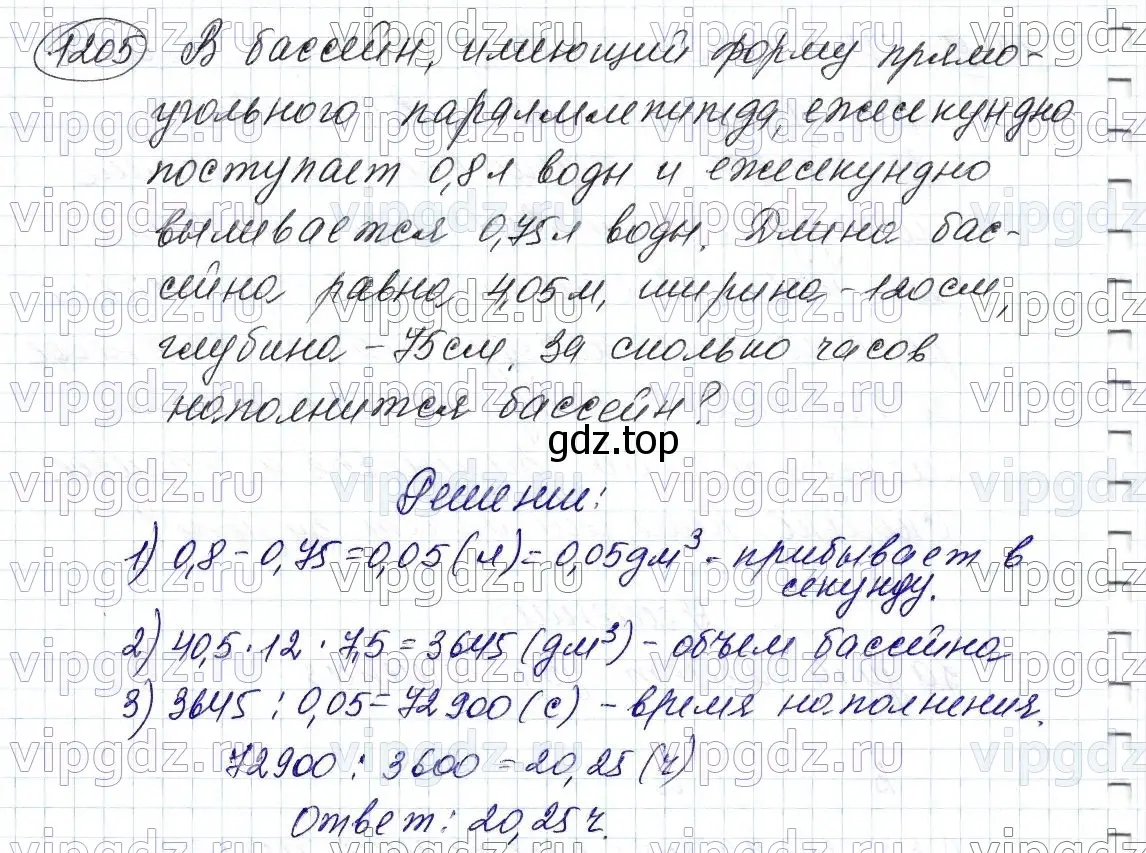 1205 В бассейн, имеющий форму прямо-
угольного параллелепипеда, ежесекундно
поступает 0,8 л воды и ежесекундно
выливается 0,75 л воды. Длина бас-
сейна равна 4,05 м, ширина - 120 см,
глубина - 75 см. За сколько часов
наполнится бассейн?
gdz.top
Решение:
1) 0,8 - 0,75 = 0,05 (л) = 0,05 дм³ - прибывает в
секунду.
2) 40,5 · 12 · 7,5 = 3645 (дм³) - объём бассейна
3) 3645 : 0,05 = 72900 (с) - время наполнения.
72900 : 3600 = 20,25 (ч)
Ответ: 20,25 ч.
vipgdz.ru